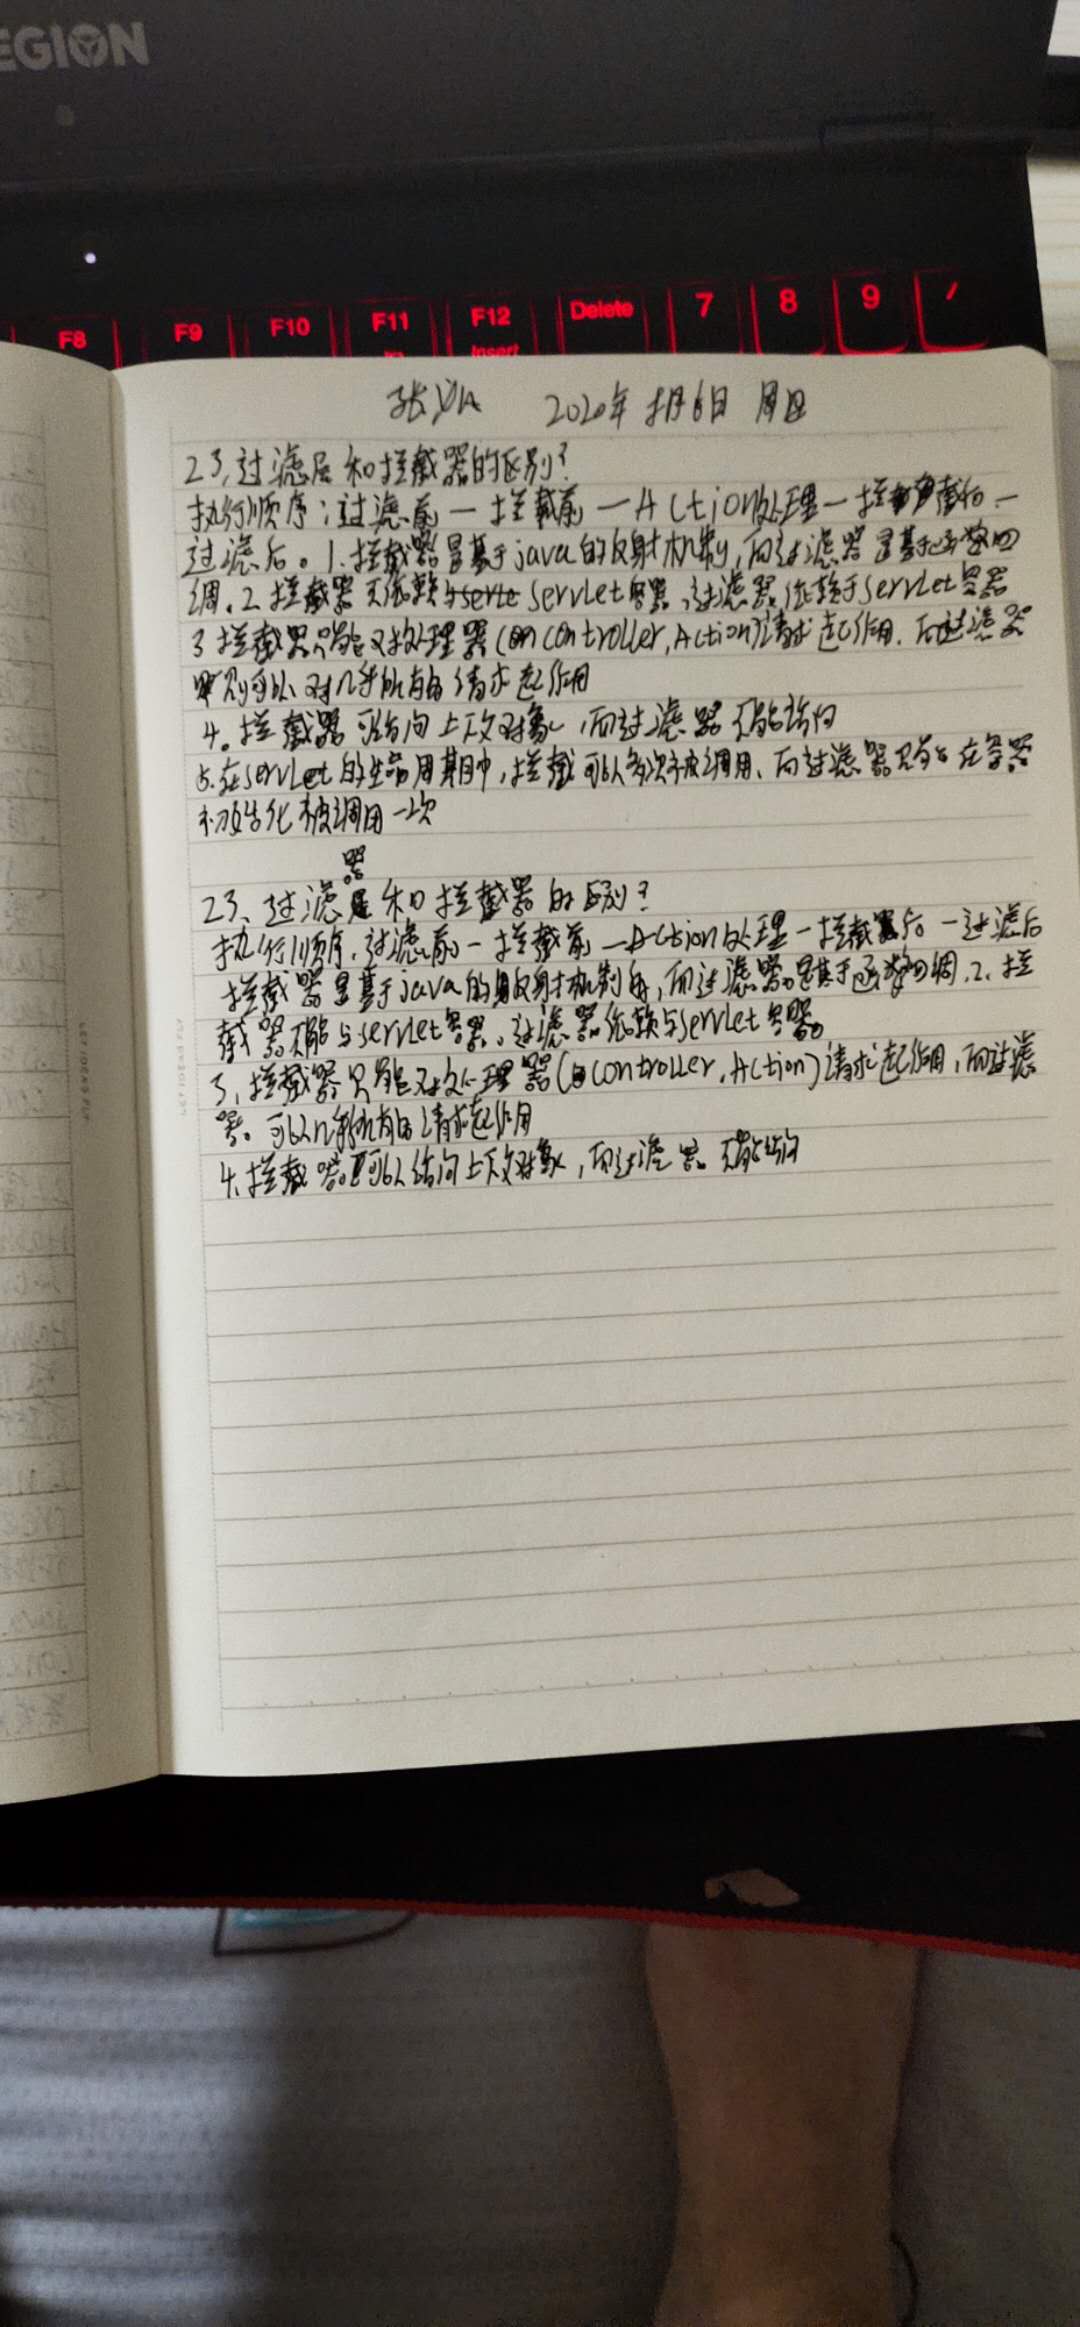 EGION
F8 F9 F10 F11 F12 Delete 7 8 9 /
Insert
张 2020年 月6日 周日
23,过滤层和拦截器的区别?
执行顺序:过滤前一拦截前一Action处理一拦截后一
过滤后。1.拦截器是基于java的反射机制,而过滤器是基于函数回
调.2.拦截器不依赖与servlet容器,过滤器依赖于servlet容器
3拦截器只能对处理器(controller,Action)请求起作用.而过滤器
则可以对几乎所有的请求起作用
4。拦截器可访问上下文对象,而过滤器不能访问
5.在servlet的生命周期中,拦截可以多次被调用、而过滤器只能在容器
初始化被调用一次
器
23、过滤和拦截器的区别?
执行顺序,过滤前一拦截前一Action处理一拦截后一过滤后
拦截器是基于java的反射机制的,而过滤器是基于函数回调.2.拦
截器不能与servlet容器,过滤器依赖与servlet容器。
3,拦截器只能对处理器(controller,Action)请求起作用,而过滤
器。可以几乎所有的请求起作用
4.拦截器可以访问上下文对象,而过滤器不能访问